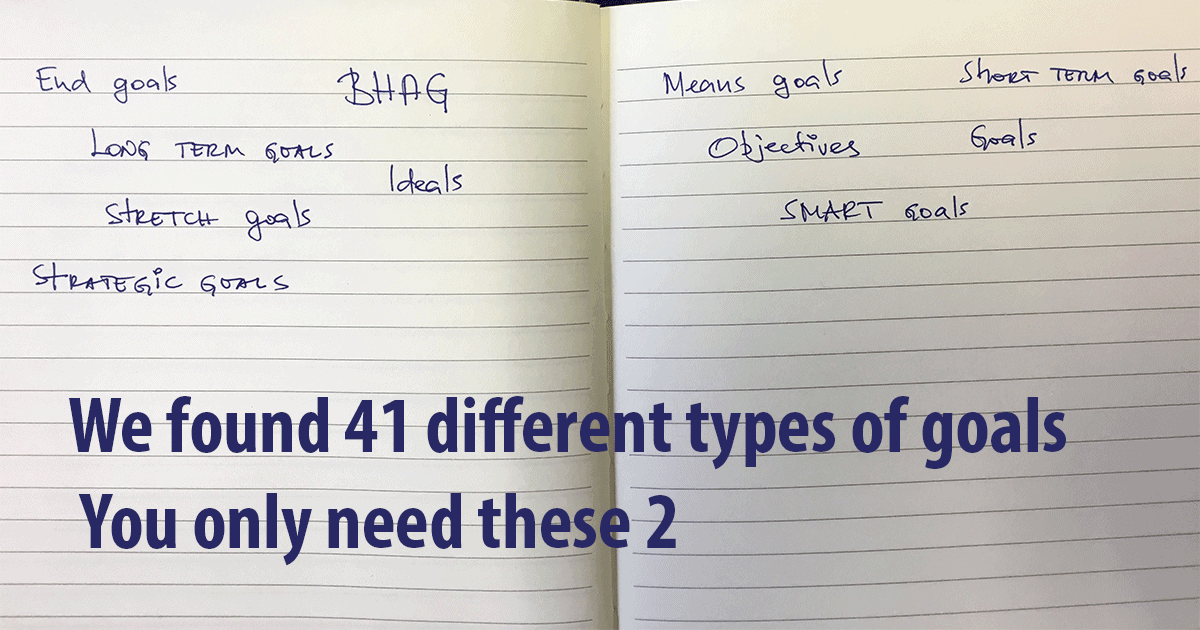 End goals
BHAG
LONG TERM GOALS
Ideals
STRETCH goals
STRATEGIC GOALS
Means goals
SHORT TERM GOALS
Objectives
Goals
SMART GOALS
We found 41 different types of goals
You only need these 2